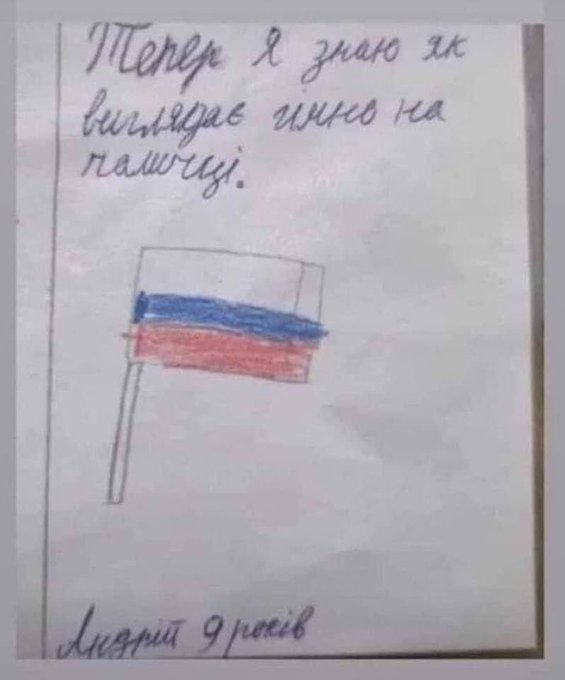 Тепер Я знаю як
виглядає гімно на
паличці.
Андрій 9 років